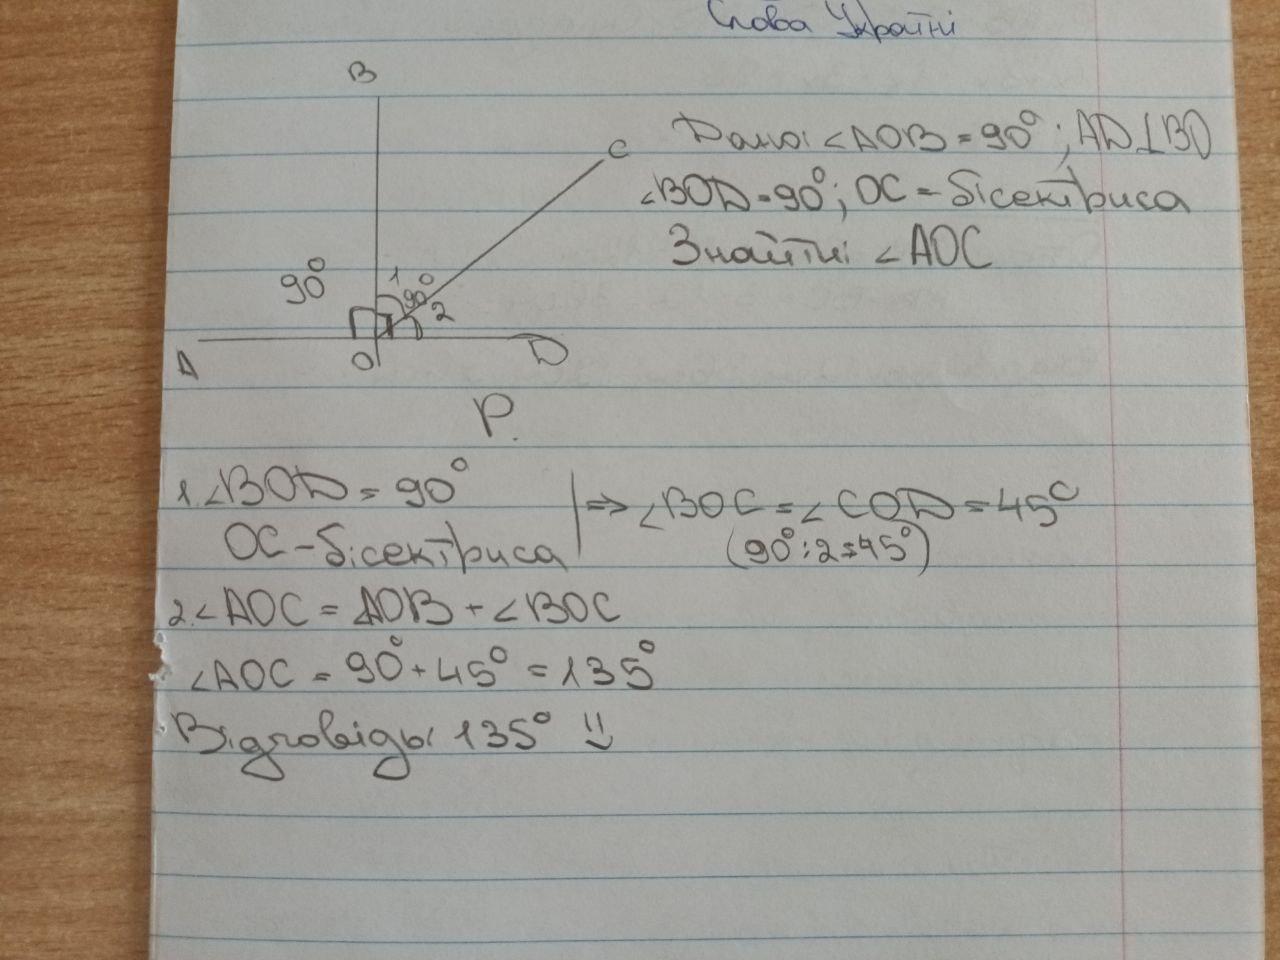 Слава Україні
B
C
90°
1
90°
2
A
O
D
Дано: ∠AOB = 90°; AD⊥BO
∠BOD = 90°; OC – бісектриса
Знайти: ∠AOC
Р.
1. ∠BOD = 90°
OC – бісектриса
⇒ ∠BOC = ∠COD = 45°
(90° : 2 = 45°)
2. ∠AOC = ∠AOB + ∠BOC
∠AOC = 90° + 45° = 135°
Відповідь: 135°